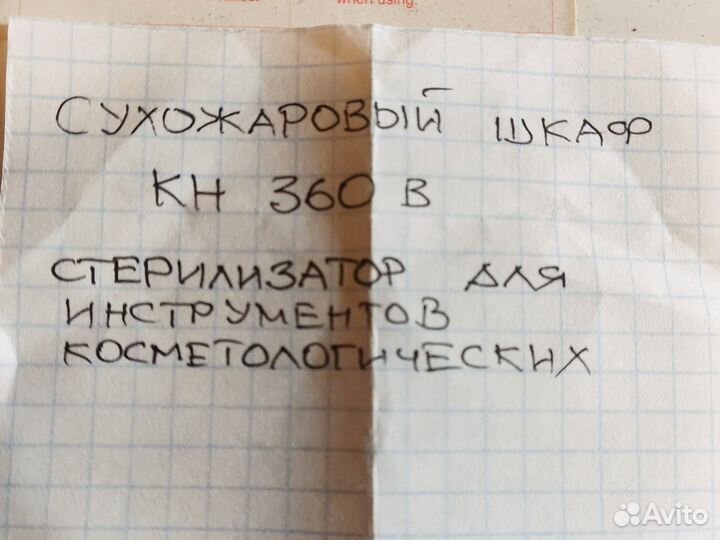 when using.
СУХОЖАРОВЫЙ ШКАФ
КН 360 В
СТЕРИЛИЗАТОР ДЛЯ
ИНСТРУМЕНТОВ
КОСМЕТОЛОГИЧЕСКИХ
Avito